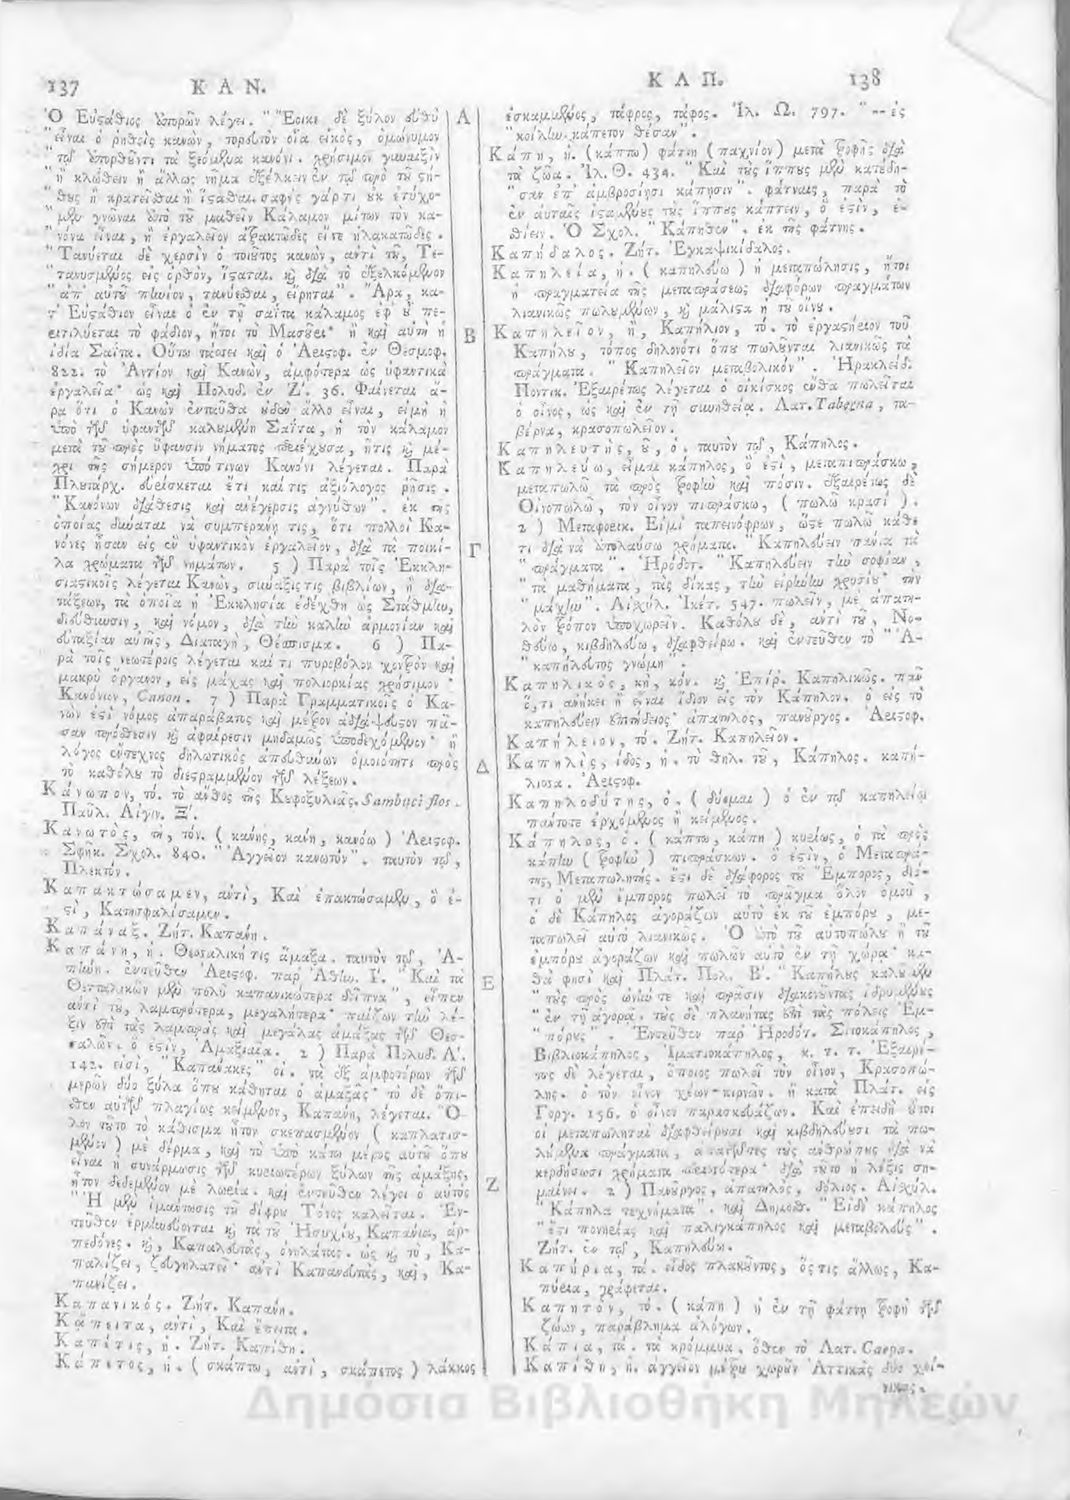 137 ΚΑΝ.
Ὁ Εὐστάθιος ἀπορῶν λέγει. "Ἔοικε δὲ ξύλον εὐθὺ
"εἶναι ὁ ῥηθεὶς κανὼν, τορευτὸν οἷα εἰκὸς, ὁμώνυμον
"τῷ ἀπορθοῦντι τὰ ξεόμενα κανόνι. χρήσιμον γυναιξὶν
"ἢ κλώθειν ἢ ἄλλως νῆμα ἐξέλκειν ἐν τῷ πρὸ τοῦ στή-
"θους ἢ κρατεῖσθαι ἢ ἵστασθαι. σαφὲς γάρ τι οὐκ ἔτυχο-
"μεν γνῶναι ἀπὸ τοῦ μαθεῖν Κάλαμον μίτων τὸν κα-
"νόνα εἶναι, ἢ ἐργαλεῖον ἀτρακτῶδες εἴτε ἠλακατῶδες.
"Τανύεται δὲ χερσὶν ὁ τοιοῦτος κανὼν, ἀντὶ τοῦ, Τε-
"τανυσμένος εἰς ὀρθὸν, ἵσταται. καὶ διὰ τὸ ἐξελκόμενον
"ἀπ' αὐτοῦ πηνίον, τανύεσθαι, εἴρηται". Ἄρα, κα-
τ' Εὐστάθιον εἶναι ὁ ἐν τῇ σαΐτα κάλαμος ἐφ' οὗ πε-
ριτυλίγεται τὸ φάδιον, ἤτοι τὸ Μασούρι· ἢ καὶ αὐτὴ ἡ
ἰδία Σαΐτα. Οὕτω παίρνει καὶ ὁ Ἀριστοφ. ἐν Θεσμοφ.
822. τὸ Ἀντίον καὶ Κανὼν, ἀμφότερα ὡς ὑφαντικὰ
ἐργαλεῖα· ὡς καὶ Πολυδ. ἐν Ζ'. 36. Φαίνεται ἄ-
ρα ὅτι ὁ Κανὼν ἐνταῦθα οὐδὲν ἄλλο εἶναι, εἰμὴ ἡ
ὑπὸ τῶν ὑφαντῶν καλουμένη Σαΐτα, ἢ τὸν κάλαμον
μετὰ τοῦ πρὸς ὕφανσιν νήματος περιέχουσα, ἥτις καὶ μέ-
χρι τῆς σήμερον ὑπό τινων Κανόνι λέγεται. Παρὰ
Πλουτάρχ. εὑρίσκεται ἔτι καί τις ἀξιόλογος ῥῆσις.
"Κανόνων διάθεσις καὶ ἀνέγερσις ἀγνύθων". ἐκ τῆς
ὁποίας δύναται νὰ συμπεράνῃ τις, ὅτι πολλοὶ Κα-
νόνες ἦσαν εἰς ἓν ὑφαντικὸν ἐργαλεῖον, διὰ τὰ ποικί-
λα χρώματα τῶν νημάτων. 5) Παρὰ τοῖς Ἐκκλη-
σιαστικοῖς λέγεται Κανὼν, σύναξίς τις βιβλίων, ἢ δια-
τάξεων, τὰ ὁποῖα ἡ Ἐκκλησία ἐδέχθη ὡς Στάθμην,
διεύθυνσιν, καὶ νόμον, διὰ τὴν καλὴν ἁρμονίαν καὶ
εὐταξίαν αὐτῆς, Διαταγὴ, Θέσπισμα. 6) Πα-
ρὰ τοῖς νεωτέροις λέγεται καί τι πυροβόλον χονδρὸν καὶ
μακρὺ ὄργανον, εἰς μάχας καὶ πολιορκίας χρήσιμον·
Κανόνιον, Canon. 7) Παρὰ Γραμματικοῖς ὁ Κα-
νών ἐστι νόμος ἀπαράβατος καὶ μέτρον ἀδιάψευστον πᾶ-
σαν πρόσθεσιν καὶ ἀφαίρεσιν μηδαμῶς ὑποδεχόμενον· ἢ
λόγος ἔντεχνος δηλωτικὸς ἀπευθύνων ὁμοιότητι πρὸς
τὸ καθόλου τὸ διεστραμμένον τῶν λέξεων.
Κάνωπον, τό. τὸ ἄνθος τῆς Κεφοξυλιᾶς. Sambuci flos.
Παῦλ. Αἰγιν. Ξ'.
Κανωτὸς, τὴ, τόν. (κάνης, κάνη, κανόω) Ἀριστοφ.
Σφηκ. Σχολ. 840. "Ἀγγεῖον κανωτὸν". ταυτὸν τῷ,
Πλεκτόν.
Καπακτώσαμεν, ἀντὶ, Καὶ ἐπακτώσαμεν, ὅ ἐ-
στι, Κατησφαλίσαμεν.
Καπάναξ. Ζήτ. Καπάνη.
Καπάνη, ἡ. Θεσσαλική τις ἅμαξα. ταυτὸν τῷ, Ἀ-
πήνη. ἐντεῦθεν Ἀριστοφ. παρ' Ἀθην. Ι'. "Καὶ τὰ
Θετταλικῶν μὲν πολὺ καπανικώτερα δεῖπνα", εἶπεν
ἀντὶ τοῦ, λαμπρότερα, μεγαλήτερα· παίζων τὴν λέ-
ξιν ἐπὶ τὰς λαμπρὰς καὶ μεγάλας ἁμάξας τῶν Θεσ-
σαλῶν. ὅ ἐστιν, Ἁμαξιαῖα. 2) Παρὰ Πολυδ. Α'.
142. εἰσὶ, "Καπάνακες" οἱ. τὰ ἐξ ἀμφοτέρων τῶν
μερῶν δύο ξύλα ὅπου κάθηται ὁ ἁμαξᾶς· τὸ δὲ ὄπι-
σθεν αὐτῶν πλαγίως κείμενον, Καπάνη, λέγεται. Ὅ-
λον τοῦτο τὸ κάθισμα ἦτον σκεπασμένον (καπλατισ-
μένον) μὲ δέρμα, καὶ τὸ ὑπὸ κάτω μέρος αὐτοῦ ὅπου
εἶναι ἡ συνάρμωσις τῶν κυριωτέρων ξύλων τῆς ἁμάξης,
ἦτον δεδεμένον μὲ λωρία. καὶ ἐντεῦθεν λέγει ὁ αὐτὸς
"Ἡ μὲν ἱμάντωσις τοῦ δίφρου Τόνος καλεῖται. Ἐν-
τεῦθεν ἑρμηνεύονται καὶ τὰ τοῦ Ἡσυχίου, Καπάνια, ἀρ-
πεδόνες. καὶ, Καπαλευτὰς, ὀνηλάτας. ὡς καὶ τὸ, Κα-
παλίζει, ζευγηλατεῖ· ἀντὶ Καπανευτὰς, καὶ, Κα-
πανίζει.
Καπανικός. Ζήτ. Καπάνη.
Κάπειτα, ἀντὶ, Καὶ ἔπειτα.
Καπέτις, ἡ. Ζήτ. Καπίθη.
Κάπετος, ἡ. (σκάπτω, ἀντὶ, σκάπετος) λάκκος
Α
Β
Γ
Δ
Ε
Ζ
ΚΑΠ. 138
ἐσκαμμένος, τάφρος, τάφος. Ἰλ. Ω. 797. "--ἐς
"κοίλην κάπετον θέσαν".
Κάπη, ἡ. (κάπτω) φάτνη (παχνίον) μετὰ τροφῆς διὰ
τὰ ζῶα. Ἰλ. Θ. 434. "Καὶ τοὺς ἵππους μὲν κατέδη-
"σαν ἐπ' ἀμβροσίῃσι κάπῃσιν". φάτναις, παρὰ τὸ
ἐν αὐταῖς ἱσταμένους τοὺς ἵππους κάπτειν, ὅ ἐστιν, ἐ-
σθίειν. Ὁ Σχολ. "Κάπηθεν". ἐκ τῆς φάτνης.
Καπήδαλος. Ζήτ. Ἐγκαψικίδαλος.
Καπηλεία, ἡ. (καπηλεύω) ἡ μεταπώλησις, ἤτοι
ἡ πραγματεία τῆς μεταπράσεως διαφόρων πραγμάτων
λιανικῶς πωλουμένων, καὶ μάλιστα ἡ τοῦ οἴνου.
Καπηλεῖον, ἢ, Καπήλιον, τό. τὸ ἐργαστήριον τοῦ
Καπήλου, τόπος δηλονότι ὅπου πωλοῦνται λιανικῶς τὰ
πράγματα. "Καπηλεῖον μεταβολικὸν". Ἡρακλείδ.
Ποντικ. Ἐξαιρέτως λέγεται ὁ οἰκίσκος ἔνθα πωλεῖται
ὁ οἶνος, ὡς καὶ ἐν τῇ συνηθείᾳ. Λατ. Taberna, τα-
βέρνα, κρασοπωλεῖον.
Καπηλευτὴς, οῦ, ὁ. ταυτὸν τῷ, Κάπηλος.
Καπηλεύω, εἶμαι κάπηλος, ὅ ἐστι, μεταπιπράσκω,
μεταπωλῶ τὰ πρὸς τροφὴν καὶ πόσιν. ἐξαιρέτως δὲ
Οἰνοπωλῶ, τὸν οἶνον πιπράσκω, (πωλῶ κρασὶ).
2) Μεταφορικ. Εἰμὶ ταπεινόφρων, ὥστε πωλῶ κάθε
τι διὰ νὰ ἀπολαύσω χρήματα. "Καπηλεύειν πάντα τὰ
"πράγματα". Ἡρόδοτ. "Καπηλεύειν τὴν σοφίαν,
"τὰ μαθήματα, τὰς δίκας, τὴν εἰρήνην χρυσίου· τὴν
"μάχην". Αἰσχύλ. Ἱκέτ. 547. πωλεῖν, μὲ ἀπατη-
λὸν τρόπον ὑποχωρεῖν. Καθόλου δὲ, ἀντὶ τοῦ, Νο-
θεύω, κιβδηλεύω, διαφθείρω. καὶ ἐντεῦθεν τὸ "Ἀ-
"καπήλευτος γνώμη".
Καπηλικὸς, κὴ, κόν. καὶ Ἐπίρ. Καπηλικῶς. πᾶν
ὅ,τι ἀνήκει ἢ εἶναι ἴδιον εἰς τὸν Κάπηλον. ὁ εἰς τὸ
καπηλεύειν ἐπιτήδειος· ἀπατηλὸς, πανοῦργος. Ἀριστοφ.
Καπήλειον, τό. Ζήτ. Καπηλεῖον.
Καπηλὶς, ίδος, ἡ. τὸ θηλ. τοῦ, Κάπηλος. καπή-
λισσα. Ἀριστοφ.
Καπηλοδύτης, ὁ. (δύομαι) ὁ ἐν τῷ καπηλείῳ
πάντοτε ἐρχόμενος ἢ κείμενος.
Κάπηλος, ὁ. (κάπτω, κάπη) κυρίως, ὁ τὰ πρὸς
κάπην (τροφὴν) πιπράσκων. ὅ ἐστιν, ὁ Μεταπρά-
της, Μεταπωλητής. ἔστι δὲ διάφορος τοῦ Ἔμπορος, διό-
τι ὁ μὲν ἔμπορος πωλεῖ τὸ πρᾶγμα ὅλον ὁμοῦ,
ὁ δὲ Κάπηλος ἀγοράζων αὐτὸ ἐκ τοῦ ἐμπόρου, με-
ταπωλεῖ αὐτὸ λιανικῶς. Ὁ ἀπὸ τοῦ αὐτοπώλου ἢ τοῦ
ἐμπόρου ἀγοράζων καὶ πωλῶν αὐτὸ ἐν τῇ χώρᾳ· κα-
θά φησι καὶ Πλάτ. Πολ. Β'. "Καπήλους καλοῦμεν
"τοὺς πρὸς ὠνήν τε καὶ πρᾶσιν διακονοῦντας ἱδρυμένους
"ἐν τῇ ἀγορᾷ. τοὺς δὲ πλανήτας ἐπὶ τὰς πόλεις Ἐμ-
"πόρους". Ἐντεῦθεν παρ' Ἡροδότ. Σιτοκάπηλος,
Βιβλιοκάπηλος, Ἱματιοκάπηλος, κ. τ. τ. Ἐξαιρέ-
τως δὲ λέγεται, ὅποιος πωλεῖ τὸν οἶνον, Κρασοπώ-
λης. ὁ τὸν οἶνον χέων κιρνῶν. ἢ κατὰ Πλάτ. εἰς
Γοργ. 156. ὁ οἶνον παρασκευάζων. Καὶ ἐπειδὴ οὗτοι
οἱ μεταπωληταὶ διαφθείρουσι καὶ κιβδηλεύουσι τὰ πω-
λούμενα πράγματα, ἀπατῶντες τοὺς ἀνθρώπους διὰ νὰ
κερδήσωσι χρήματα περισσότερα· διὰ τοῦτο ἡ λέξις ση-
μαίνει. 2) Πανοῦργος, ἀπατηλὸς, δόλιος. Αἰσχύλ.
"Κάπηλα τεχνήματα". καὶ Δημοσθ. "Εἶδε κάπηλος
"ἐστι πονηρίας καὶ παλιγκάπηλος καὶ μεταβολεὺς".
Ζήτ. ἐν τῷ, Καπηλεύω.
Καπήρια, τά. εἶδος πλακοῦντος, ὅστις ἄλλως, Κα-
πύρια, γράφεται.
Καπητὸν, τό. (κάπη) ἡ ἐν τῇ φάτνῃ τροφὴ τῶν
ζώων, παράβλημα ἀλόγων.
Κάπια, τά. τὰ κρόμμυα. ὅθεν τὸ Λατ. Caepa.
Καπίθη, ἡ. ἀγγεῖον μέτρου χωροῦν Ἀττικὰς δύο χοί-
νικας.
Δημόσια Βιβλιοθήκη Μηλεών